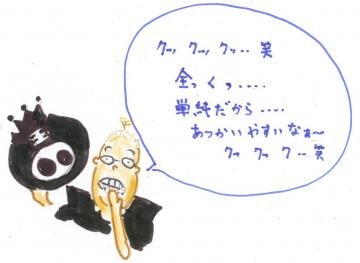 クッ クッ クッ‥ 笑
全っくっ‥‥
単純だから‥‥
あつかいやすいなぁ〜
クッ クッ ク‥笑